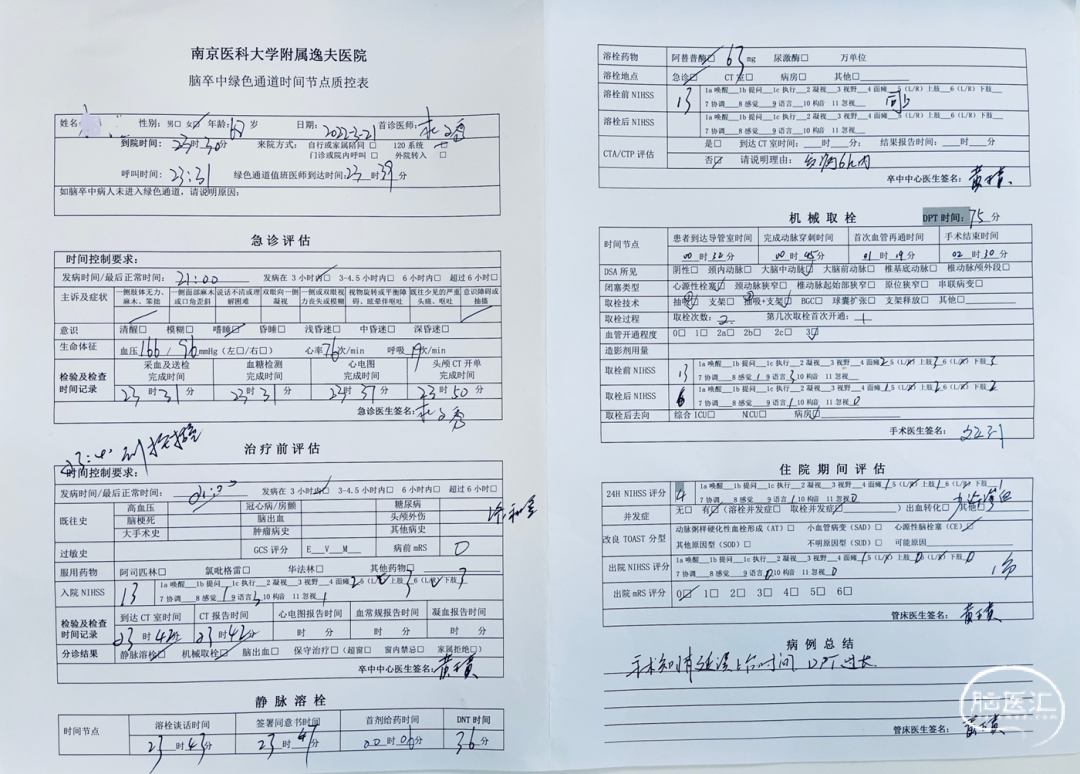 南京医科大学附属逸夫医院
脑卒中绿色通道时间节点质控表
姓名 性别：男□ 女☑ 年龄：67 岁 日期：2022-3-21 首诊医师：
到院时间：23时30分 来院方式：自行或家属陪同 □ 120 系统 □
门诊或院内呼叫 □ 外院转入 □
呼叫时间：23:31 绿色通道值班医师到达时间：23 时39分
如脑卒中病人未进入绿色通道，请说明原因：
急诊评估
时间控制要求：
发病时间/最后正常时间：21:00 发病在 3 小时内☑ 3-4.5 小时内□ 6 小时内□ 超过 6 小时□
主诉及症状 一侧肢体无力、麻木、笨拙 一侧面部麻木或口角歪斜 说话不清或理解困难 双眼向一侧凝视 一侧或双眼视力丧失或模糊 视物旋转或平衡障碍、眩晕伴呕吐 既往少见的严重头痛、呕吐 意识障碍或抽搐
意识 清醒□ 模糊□ 嗜睡☑ 昏睡□ 浅昏迷□ 中昏迷□ 深昏迷□
生命体征 血压166/96mmHg（左□/右□） 心率76次/min 呼吸19次/min
检验及检查时间记录 采血及送检完成时间 血糖检测完成时间 心电图完成时间 头颅 CT 开单完成时间
23 时31分 23 时31分 23时37分 23 时50分
急诊医生签名：
治疗前评估
时间控制要求：
发病时间/最后正常时间：21:00 发病在 3 小时内☑ 3-4.5 小时内□ 6 小时内□ 超过 6 小时□
既往史 高血压 冠心病/房颤 糖尿病
脑梗死 脑出血 头颅外伤
大手术史 肿瘤病史 其他病史
过敏史 GCS 评分 E__V__M__ 病前 mRS 0
服用药物 阿司匹林□ 氯吡格雷□ 华法林□ 其他药物
入院 NIHSS 13 1a 唤醒__1b 提问__1c 执行__2 凝视__3 视野__4 面瘫2 5 上肢3 6 下肢3
7 协调__8 感觉1 9 语言3 10 构音 11 忽视1
检验及检查时间记录 到达 CT 室时间 CT 报告时间 心电图报告时间 血常规报告时间 凝血报告时间
23 时42分 23 时42分 时 分 时 分 时 分
分诊结果 静脉溶栓☑ 机械取栓☑ 脑出血□ 保守治疗□（超窗□ 窗内禁忌□ 家属拒绝□）
卒中中心医生签名：
静脉溶栓
时间节点 溶栓谈话时间 签署同意书时间 首剂给药时间 DNT 时间
23时43分 23 时47分 00时06分 36分
溶栓药物 阿替普酶☑ 63mg 尿激酶□ 万单位
溶栓地点 急诊☑ CT 室□ 病房□ 其他□
溶栓前 NIHSS 13 1a 唤醒__1b 提问__1c 执行__2 凝视__3 视野__4 面瘫__5（L/R）上肢__6（L/R）下肢__
7 协调__8 感觉__9 语言__10 构音__11 忽视__ 同上
溶栓后 NIHSS 1a 唤醒__1b 提问__1c 执行__2 凝视__3 视野__4 面瘫__5（L/R）上肢__6（L/R）下肢__
7 协调__8 感觉__9 语言__10 构音__11 忽视__
CTA/CTP 评估 是□ 到达 CT 室时间：__时__分； 结果报告时间：__时__分
否☑ 请说明理由：
卒中中心医生签名：
机械取栓 DPT 时间：75分
时间节点 患者到达导管室时间 完成动脉穿刺时间 首次血管再通时间 手术结束时间
00 时32分 00 时45分 01 时19分 02 时30分
DSA 所见 阴性□ 颈内动脉□ 大脑中动脉☑ 大脑前动脉□ 椎基底动脉□ 椎动脉颅外段□
闭塞类型 心源性栓塞☑ 颈动脉狭窄□ 椎动脉起始部狭窄□ 原位狭窄□ 串联病变□
取栓技术 抽吸☑ 支架□ 抽吸+支架☑ BGC□ 球囊扩张□ 支架释放□ 其他□
取栓过程 取栓次数：2 第几次取栓首次开通：1
血管开通程度 0□ 1□ 2a□ 2b□ 2c□ 3☑
造影剂用量
取栓前 NIHSS 13 1a 唤醒__1b 提问__1c 执行__2 凝视__3 视野__4 面瘫2 5 上肢3 6 下肢3
7 协调__8 感觉1 9 语言3 10 构音 11 忽视
取栓后 NIHSS 6 1a 唤醒__1b 提问__1c 执行__2 凝视__3 视野__4 面瘫1 5 上肢2 6 下肢2
7 协调__8 感觉__9 语言1 10 构音 11 忽视0
取栓后去向 综合 ICU□ NICU□ 病房☑
手术医生签名：
住院期间评估
24H NIHSS 评分 4 1a 唤醒__1b 提问__1c 执行__2 凝视__3 视野__4 面瘫1 5 上肢1 6 下肢1
7 协调__8 感觉__9 语言1 10 构音 11 忽视0
并发症 无□ 有☑（溶栓并发症□ 取栓并发症□）出血转化□ 其他
改良 TOAST 分型 动脉粥样硬化性血栓形成（AT）□ 小血管病变（SAD）□ 心源性脑栓塞（CE）☑
其他原因型（SOD）□ 不明原因型（SUD）□ 可能原因
出院 NIHSS 评分 1a 唤醒__1b 提问__1c 执行__2 凝视__3 视野__4 面瘫1 5 上肢0 6 下肢0
7 协调__8 感觉__9 语言0 10 构音 11 忽视0 1分
出院 mRS 评分 0☑ 1□ 2□ 3□ 4□ 5□ 6□
管床医生签名：
病例总结
手术知情延误上台时间 DPT过长
管床医生签名：
脑医汇